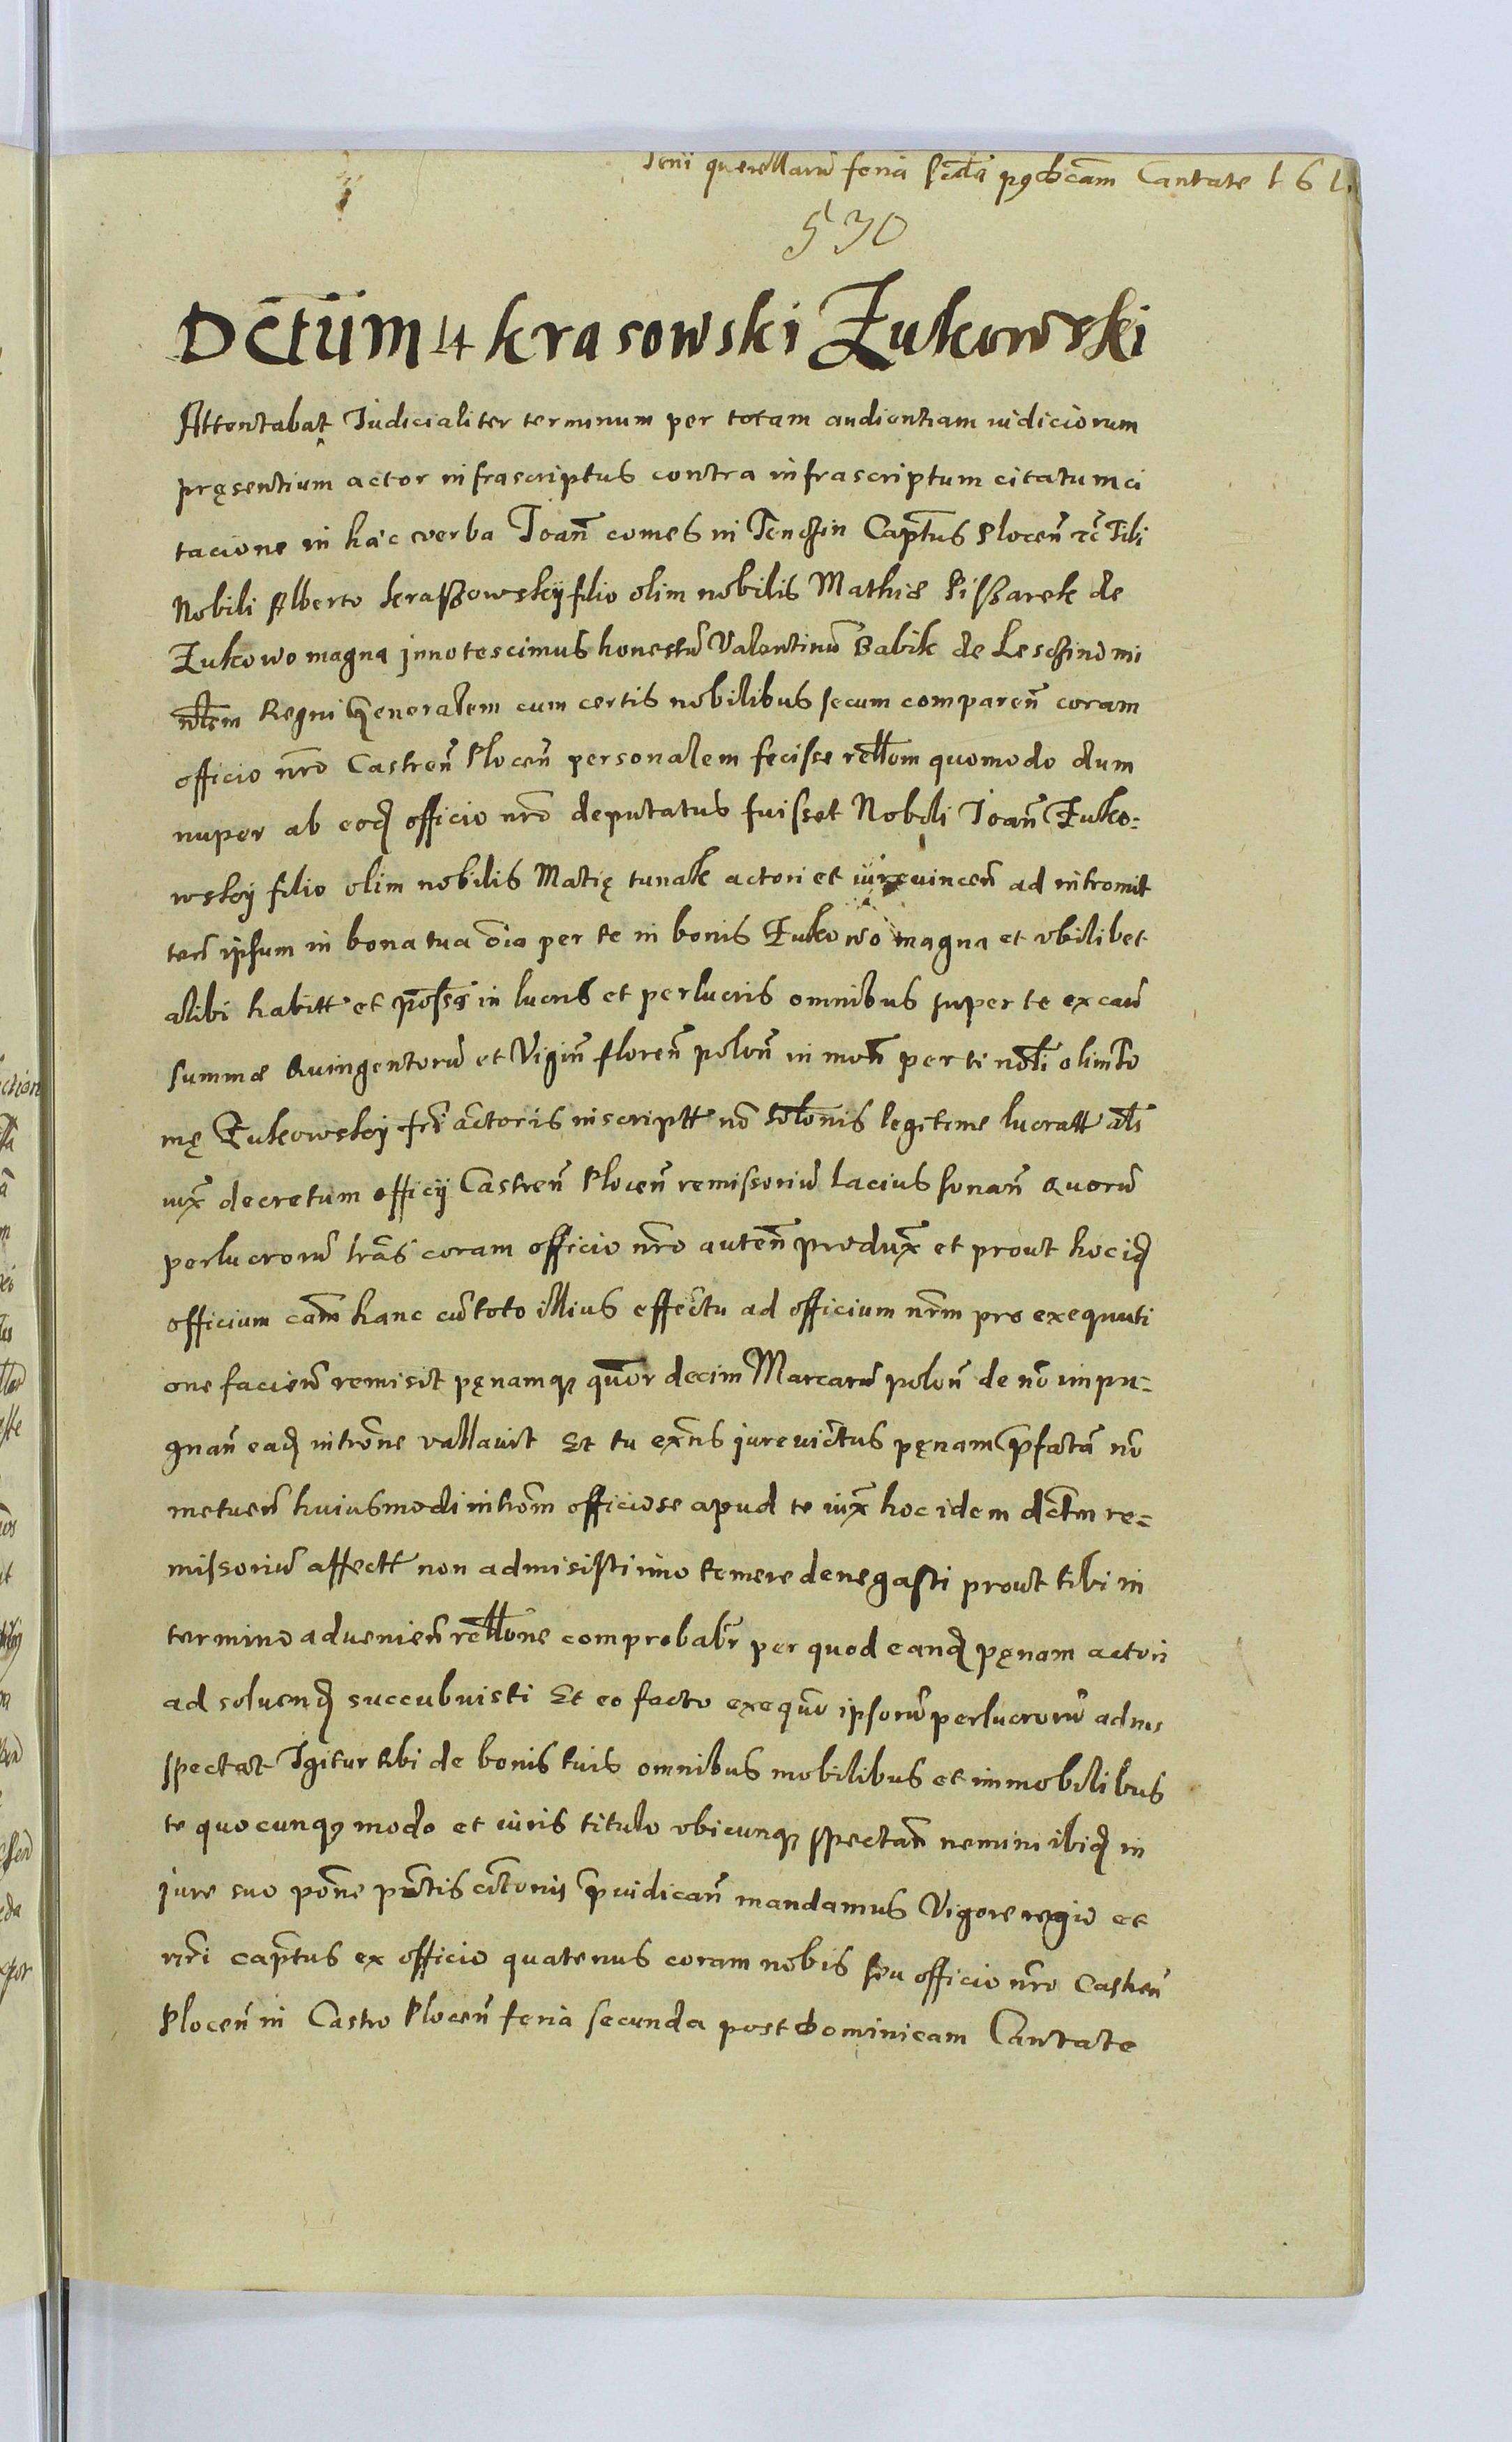 querellarũ feria scđa p9 dõcam Cantate 161
530
Dctum 14 krasowski Zukowski
Attentabat Iudicialiter terminum per totam audientiam iudiciorum
pręsentium actor infrascriptus contra infrascriptum citatum ci
tacione in hæc verba Ioañ comes in Tenchin Captus Plocen̄ rc̄ Tibi
Nobili Alberto kraszowskij filio olim nobilis Mathiæ Piszarek de
Zukowo magna innotescimus honestũ Valentinũ Babik de Leschino mi
nrlem Regni generalem cum certis nobilibus secum comparen̄ coram
officio nr̄o Castren̄ Plocen̄ personalem fecisse rellom quomodo dum
nuper ab eod officio nr̄o deputatus fuisset Nobili Ioañ Zuko=
wskij filio olim nobilis Matię tunak actori et iurevincen̄ ad intromit
ten̄ ipsum in bona tua oīa per te in bonis Zukowo magna et vbilibet
alibi habitt et posša in lucris et perlucris omnibus super te ex cau
summæ Quingentorũ et Vigin̄ floren̄ polon̄ in mon̄ per ti nobli olim to
mę Zukowskij fri actoris inscriptt no solonis legitime lucratt als
iux̄ decretum officij Castren̄ Plocen̄ remissoriũ lacius sonan̄ Quorũ
perlucrorũ lrās coram officio nr̄o auten̄ produx̄ et prout hoc id
officium cām hanc cũ toto illius effectu ad officium nr̄m pro exequuti
one facien̄ remisit pęnamq3 quor decim Marcarũ polon̄ de no impu=
gnan̄ ead intrōne vallauit Et tu exñs iurevictus pęnam pfactā no
metuen̄ huiusmodi introm officiose apud te iux̄ hoc idem dctm re=
missoriũ affectt non admisisti imo temere denegasti prout tibi in
termino aduenien̄ rellone comprobabr per quod eand pęnam actori
ad soluend succubuisti Et eo facto exequo ipsorũ perlucrorũ ad nos
spectat Igitur tibi de bonis tuis omnibus mobilibus et immobilibus
te quocunq3 modo et iuris titulo vbicunq3 spectan̄ nemini ibid in
iure suo pōne pntis citonis pɼiudican̄ mandamus Vigore regio et
nr̄i captus ex officio quatenus coram nobis seu officio nr̄o Castren̄
Plocen̄ in Castro Plocen̄ feria secunda post dominicam Cantate